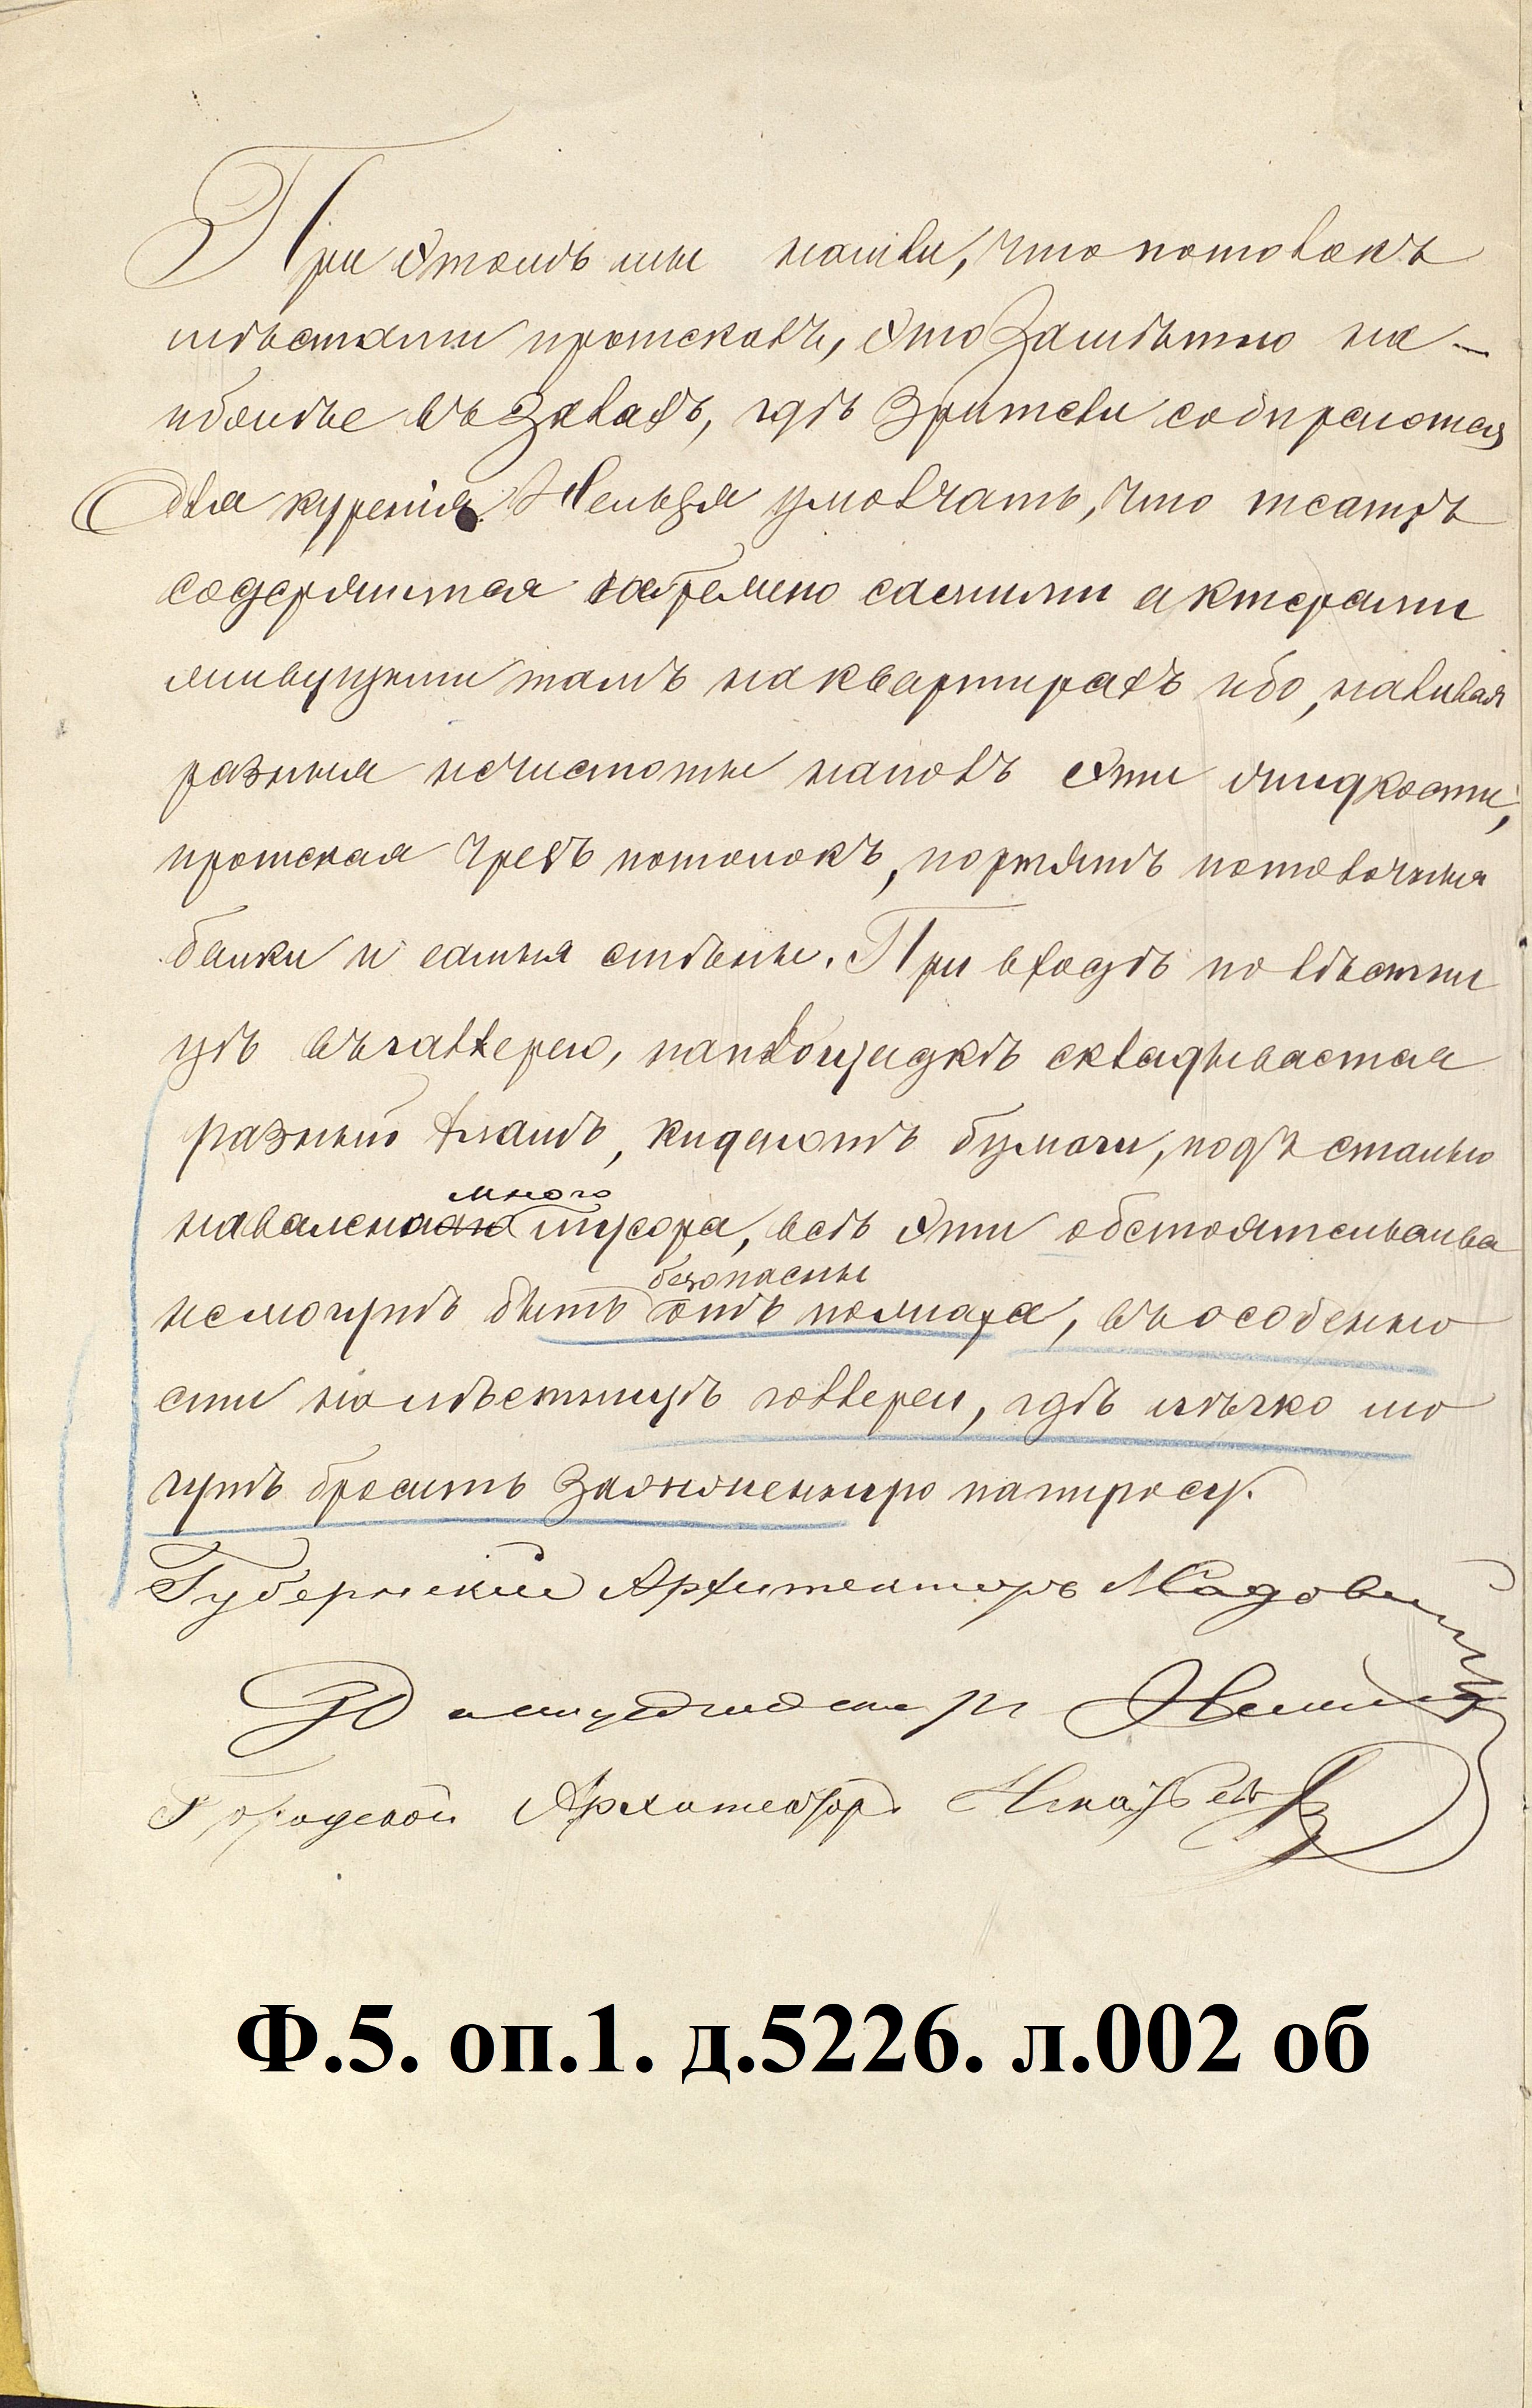 При этомъ мы нашли, что потолокъ
мѣстами протекалъ, это замѣтно на-
иболѣе въ залахъ, гдѣ зрители собираются
для курения. Нельзя умолчать, что театръ
содержится небрежно самими актерами
живущими тамъ на квартирахъ ибо, наливая
разныя нечистоты на полъ эти жидкости,
протекая чрезъ потолокъ, портятъ потолочныя
балки и самыя стѣны. При входѣ по лѣстни
цѣ въ галлерею, на площадкѣ складывается
разный хламъ, кидаютъ бумаги, подъ сталью
навалено много мусора, всѣ эти обстоятельства
не могутъ быть безопасны отъ пожара, въ особенно
сти на лѣстницѣ галлереи, гдѣ легко мо
гутъ бросить зажженную папиросу.
Губернскій Архитекторъ
Городской Архитекторъ
Ф.5. оп.1. д.5226. л.002 об